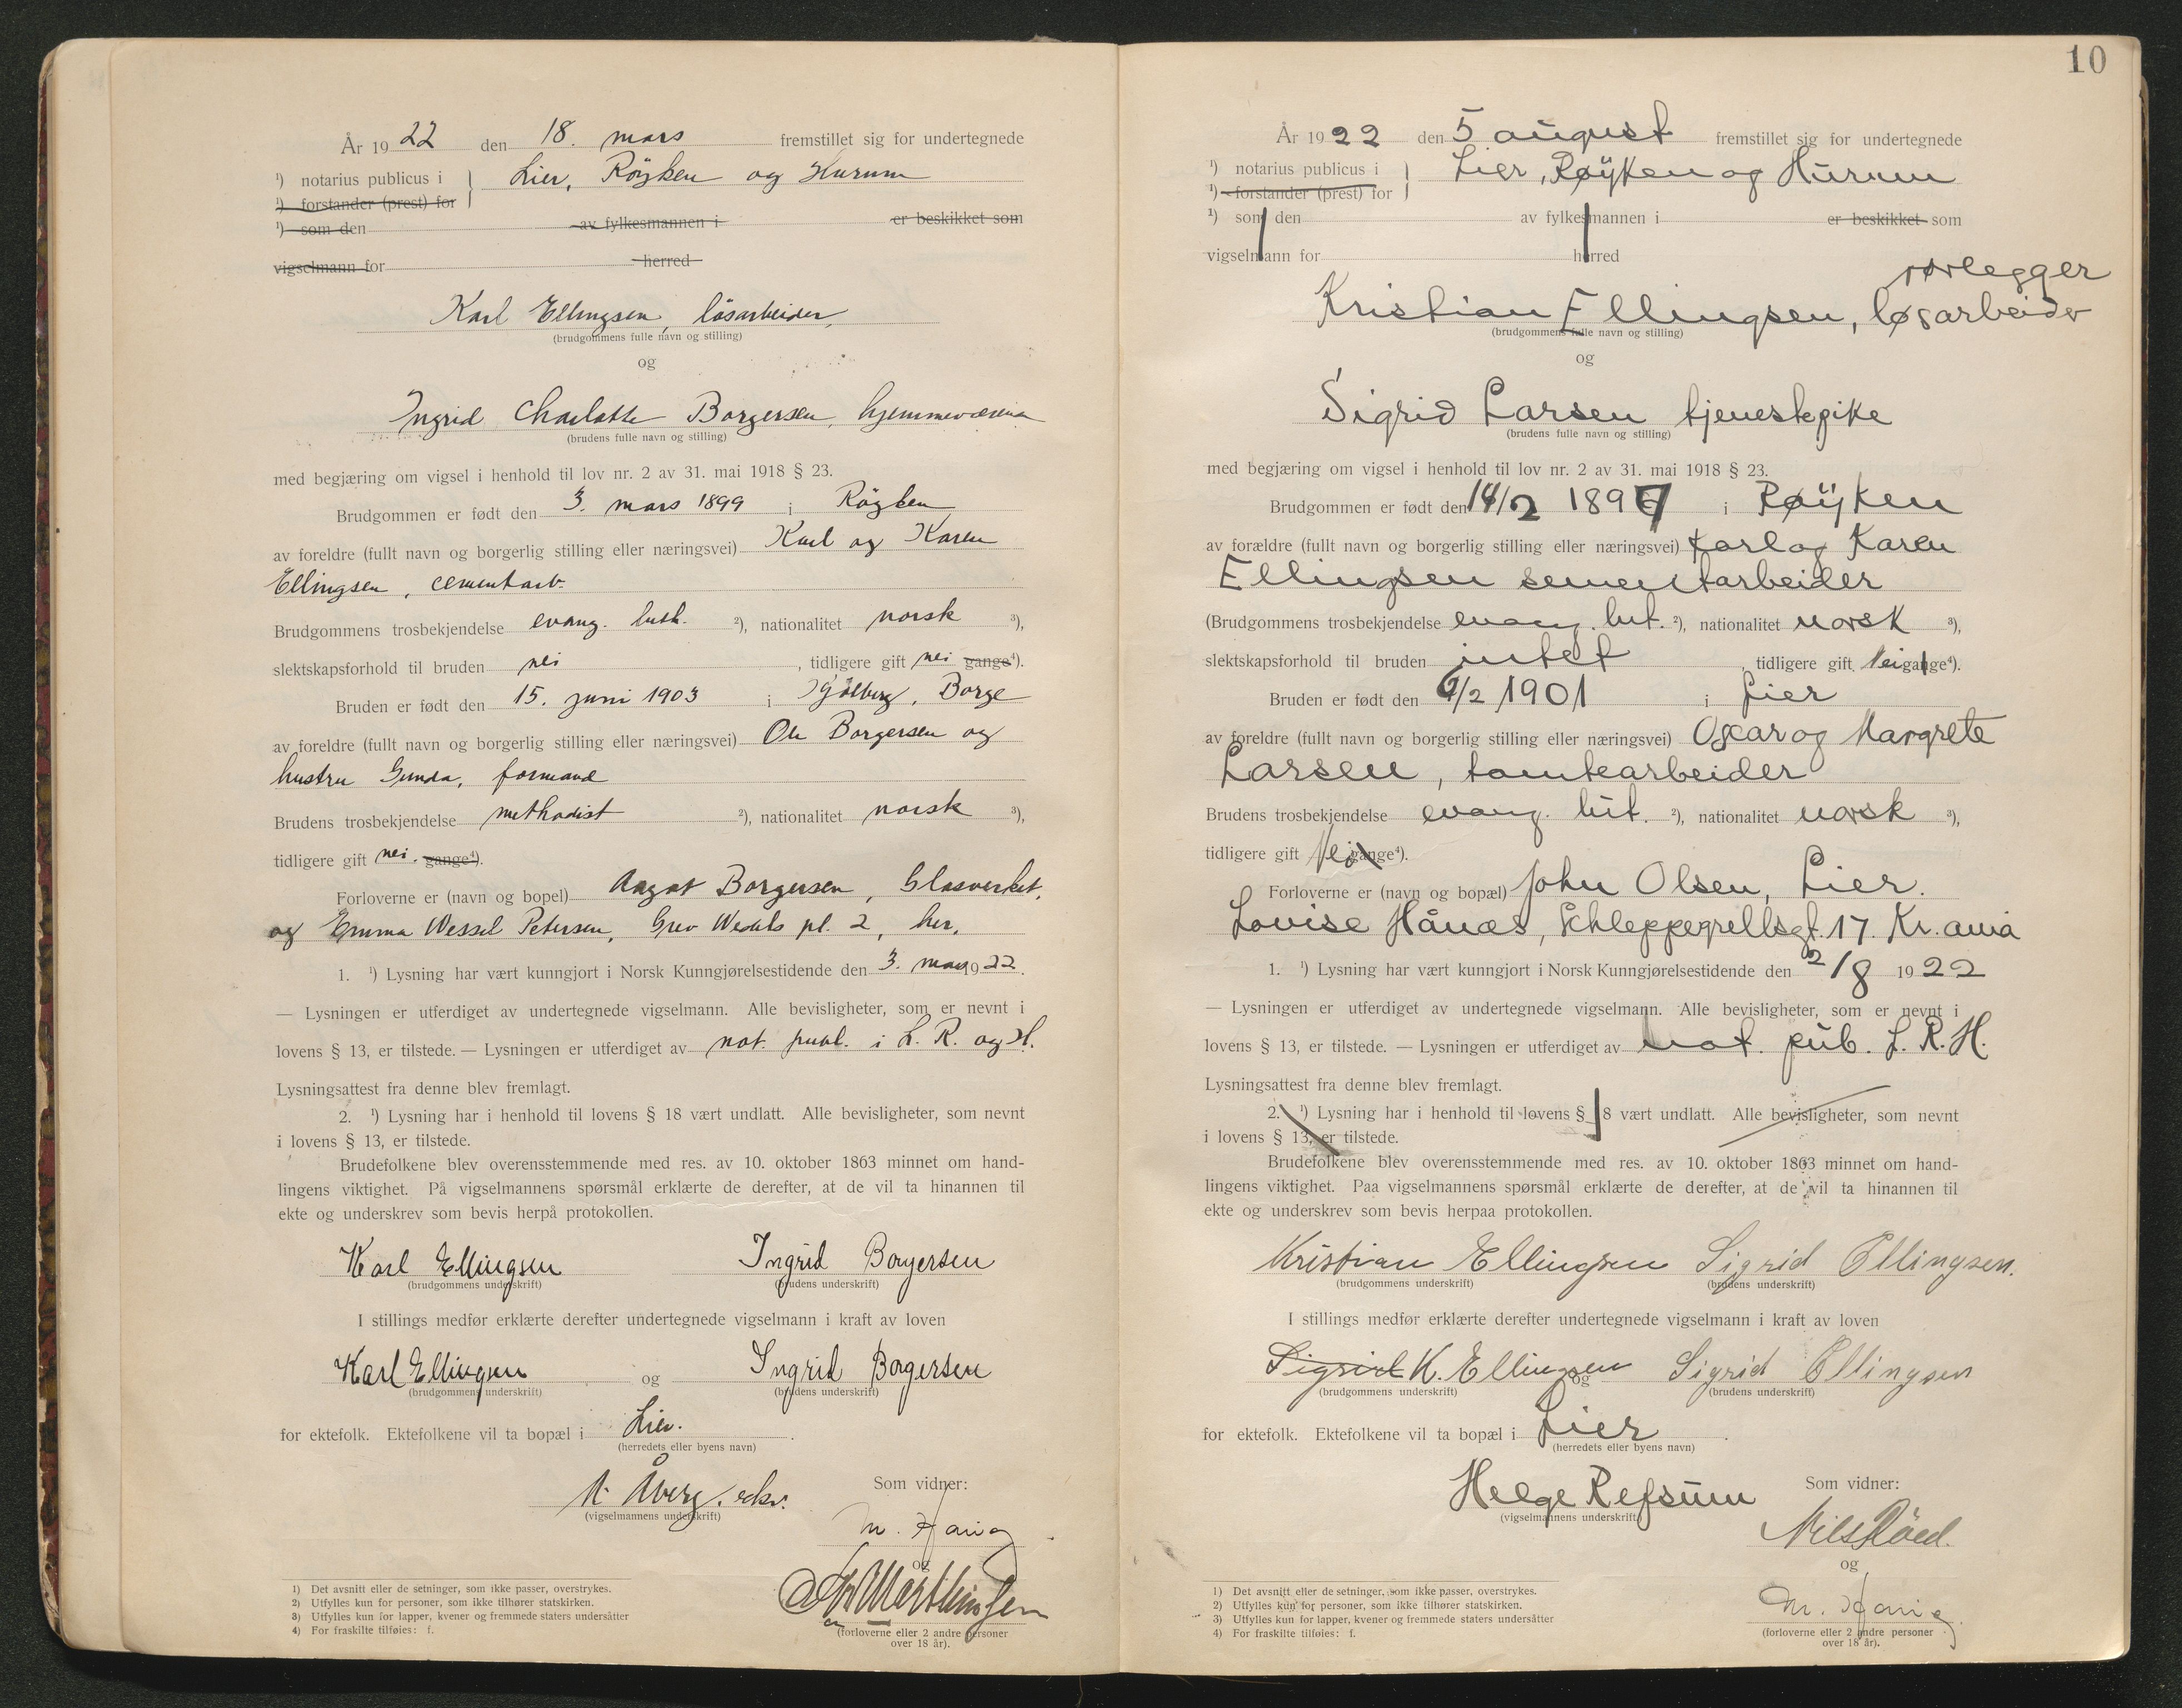 År 1922 den 18. mars fremstillet sig for undertegnede
¹) notarius publicus i Lier, Röyken og Hurum
¹) forstander (prest) for
¹) som den av fylkesmannen i er beskikket som
vigselmann for herred
Karl Ellingsen, lösarbeider,
(brudgommens fulle navn og stilling)
og
Ingrid Charlotte Borgersen, hjemmeværende
(brudens fulle navn og stilling)
med begjæring om vigsel i henhold til lov nr. 2 av 31. mai 1918 § 23.
Brudgommen er født den 3. mars 1899 i Röyken
av foreldre (fullt navn og borgerlig stilling eller næringsvei) Karl og Karen
Ellingsen, cementarb.
Brudgommens trosbekjendelse evang. luth. ²), nationalitet norsk ³),
slektskapsforhold til bruden nei, tidligere gift nei gange⁴).
Bruden er født den 15. juni 1903 i Borge
av foreldre (fullt navn og borgerlig stilling eller næringsvei) Ole Borgersen og
hustru Gunda, formand
Brudens trosbekjendelse methodist ²), nationalitet norsk ³),
tidligere gift nei. gange⁴).
Forloverne er (navn og bopel) Aagot Borgersen, Glasverket,
og Emma Wessel Petersen, Grev Wedels pl. 2, her.
1. ¹) Lysning har vært kunngjort i Norsk Kunngjørelsestidende den 3. mars 1922.
— Lysningen er utferdiget av undertegnede vigselmann. Alle bevisligheter, som er nevnt i
lovens § 13, er tilstede. — Lysningen er utferdiget av not. publ. i L. R. og H.
Lysningsattest fra denne blev fremlagt.
2. ¹) Lysning har i henhold til lovens § 18 vært undlatt. Alle bevisligheter, som nevnt
i lovens § 13, er tilstede.
Brudefolkene blev overensstemmende med res. av 10. oktober 1863 minnet om hand-
lingens viktighet. På vigselmannens spørsmål erklærte de derefter, at de vil ta hinannen til
ekte og underskrev som bevis herpå protokollen.
Karl Ellingsen Ingrid Borgersen
(brudgommens underskrift) (brudens underskrift)
I stillings medfør erklærte derefter undertegnede vigselmann i kraft av loven
Karl Ellingsen og Ingrid Borgersen
(brudgommens underskrift) (brudens underskrift)
for ektefolk. Ektefolkene vil ta bopæl i Lier.
(herredets eller byens navn)
Åberg
(vigselmannens underskrift)
Som vidner:
og
(forloverne eller 2 andre personer
over 18 år).
1) Det avsnitt eller de setninger, som ikke passer, overstrykes.
2) Utfylles kun for personer, som ikke tilhører statskirken.
3) Utfylles kun for lapper, kvener og fremmede staters undersåtter
4) For fraskilte tilføies: f.
10
År 1922 den 5 august fremstillet sig for undertegnede
¹) notarius publicus i Lier, Røyken og Hurum
¹) forstander (prest) for
¹) som den av fylkesmannen i er beskikket som
vigselmann for herred
rørlegger
Kristian Ellingsen, løsarbeider
(brudgommens fulle navn og stilling)
og
Sigrid Larsen tjenestepike
(brudens fulle navn og stilling)
med begjæring om vigsel i henhold til lov nr. 2 av 31. mai 1918 § 23.
Brudgommen er født den 14/2 1897 i Røyken
av forældre (fullt navn og borgerlig stilling eller næringsvei) Karl og Karen
Ellingsen sementarbeider
(Brudgommens trosbekjendelse evang. lut. ²), nationalitet norsk ³),
slektskapsforhold til bruden intet, tidligere gift Nei gange⁴).
Bruden er født den 6/2 1901 i Lier
av foreldre (fullt navn og borgerlig stilling eller næringsvei) Oscar og Margrete
Larsen, tomtearbeider
Brudens trosbekjendelse evang. lut. ²), nationalitet norsk ³),
tidligere gift Nei gange⁴).
Forloverne er (navn og bopæl) John Olsen, Lier.
Lovise Hånæs, Schleppegrellsgt. 17. Kr.ania
1. ¹) Lysning har vært kunngjort i Norsk Kunngjørelsestidende den 2/8 1922
— Lysningen er utferdiget av undertegnede vigselmann. Alle bevisligheter, som er nevnt i
lovens § 13, er tilstede. — Lysningen er utferdiget av not. pub. L. R. H.
Lysningsattest fra denne blev fremlagt.
2. ¹) Lysning har i henhold til lovens § 18 vært undlatt. Alle bevisligheter, som nevnt
i lovens § 13, er tilstede.
Brudefolkene blev overensstemmende med res. av 10. oktober 1863 minnet om hand-
lingens viktighet. Paa vigselmannens spørsmål erklærte de derefter, at de vil ta hinannen til
ekte og underskrev som bevis herpaa protokollen.
Kristian Ellingsen Sigrid Ellingsen.
(brudgommens underskrift) (brudens underskrift)
I stillings medfør erklærte derefter undertegnede vigselmann i kraft av loven
Sigrid K. Ellingsen og Sigrid Ellingsen
(brudgommens underskrift) (brudens underskrift)
for ektefolk. Ektefolkene vil ta bopæl i Lier.
(herredets eller byens navn)
Helge Refsum
(vigselmannens underskrift)
Som vidner:
Nils Röed.
og
(forloverne eller 2 andre personer
over 18 år).
1) Det avsnitt eller de setninger, som ikke passer, overstrykes.
2) Utfylles kun for personer, som ikke tilhører statskirken.
3) Utfylles kun for lapper, kvener og fremmede staters undersåtter
4) For fraskilte tilføies: f.